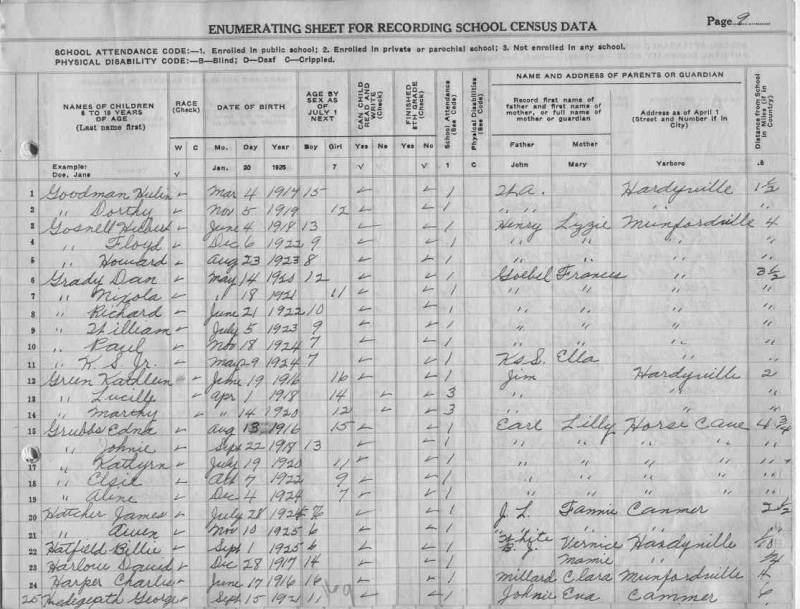 Page 9
ENUMERATING SHEET FOR RECORDING SCHOOL CENSUS DATA
SCHOOL ATTENDANCE CODE:—1. Enrolled in public school; 2. Enrolled in private or parochial school; 3. Not enrolled in any school.
PHYSICAL DISABILITY CODE:—B—Blind; D—Deaf C—Crippled.
NAMES OF CHILDREN 6 TO 18 YEARS OF AGE (Last name first) RACE (Check) DATE OF BIRTH AGE BY SEX AS OF JULY 1 NEXT CAN CHILD READ AND WRITE (Check) FINISHED 8TH GRADE (Check) School Attendance (See Code) Physical Disabilities (See Code) NAME AND ADDRESS OF PARENTS OR GUARDIAN Distance from School in Miles (if in Country)
Record first name of father and first name of mother, or full name of mother or guardian Address as of April 1 (Street and Number if in City)
W C Mo. Day Year Boy Girl Yes No Yes No Father Mother
Example: Doe, Jane √ Jan. 20 1925 7 √ √ 1 C John Mary Yarboro .8
1 Goodman ✓ Mar 4 1917 15 ✓ ✓ 1 Hardyville 1½
2 " Dorthy ✓ Nov 5 1919 12 ✓ ✓ 1 " " " "
3 Gosnell ✓ June 4 1918 13 ✓ ✓ 1 Henry Lizzie Munfordville 4
4 " Floyd ✓ Dec 6 1922 9 ✓ ✓ 1 " " " "
5 " Howard ✓ Aug 23 1923 8 ✓ ✓ 1 " " " "
6 Grady Dan ✓ May 14 1920 12 ✓ ✓ 1 Goebel Frances " 3½
7 " ✓ " 18 1921 11 ✓ ✓ 1 " " " "
8 " Richard ✓ June 21 1922 10 ✓ ✓ 1 " " " "
9 " William ✓ July 5 1923 9 ✓ ✓ 1 " " " "
10 " Paul ✓ Nov 18 1924 7 ✓ ✓ 1 " " " "
11 " K. S. Jr. ✓ May 29 1924 7 ✓ ✓ 1 Ella " "
12 Green Kathleen ✓ June 19 1916 16 ✓ ✓ 1 Jim Hardyville 2
13 " Lucille ✓ Apr 1 1918 14 ✓ ✓ 3 " " "
14 " ✓ " 14 1920 12 ✓ ✓ 3 " " "
15 Grubbs Edna ✓ Aug 13 1916 15 ✓ ✓ 1 Earl Lilly Horse Cave 4¾
16 " Johnie ✓ Sept 22 1918 13 ✓ ✓ 1 " " " "
17 " Kathyrn ✓ July 19 1920 11 ✓ ✓ 1 " " " "
18 " Elsie ✓ 7 1922 9 ✓ ✓ 1 " " " "
19 " Alene ✓ Dec 4 1924 7 ✓ ✓ 1 " " " "
20 Hatcher James ✓ July 28 ✓ ✓ 1 J. L. Fannie Canmer 2½
21 " ✓ Nov 10 1925 6 ✓ 1 " " " "
22 Hatfield Billie ✓ Sept 1 1925 6 ✓ 1 White Vernice Hardyville
23 Harlow David ✓ Dec 28 1917 14 ✓ ✓ 1 Mamie "
24 Harper Charlie ✓ June 17 1916 16 ✓ ✓ 1 Millard Clara Munfordville 4
25 George ✓ Sept 15 1921 11 ✓ ✓ 1 Johnie Eva Cammer 6